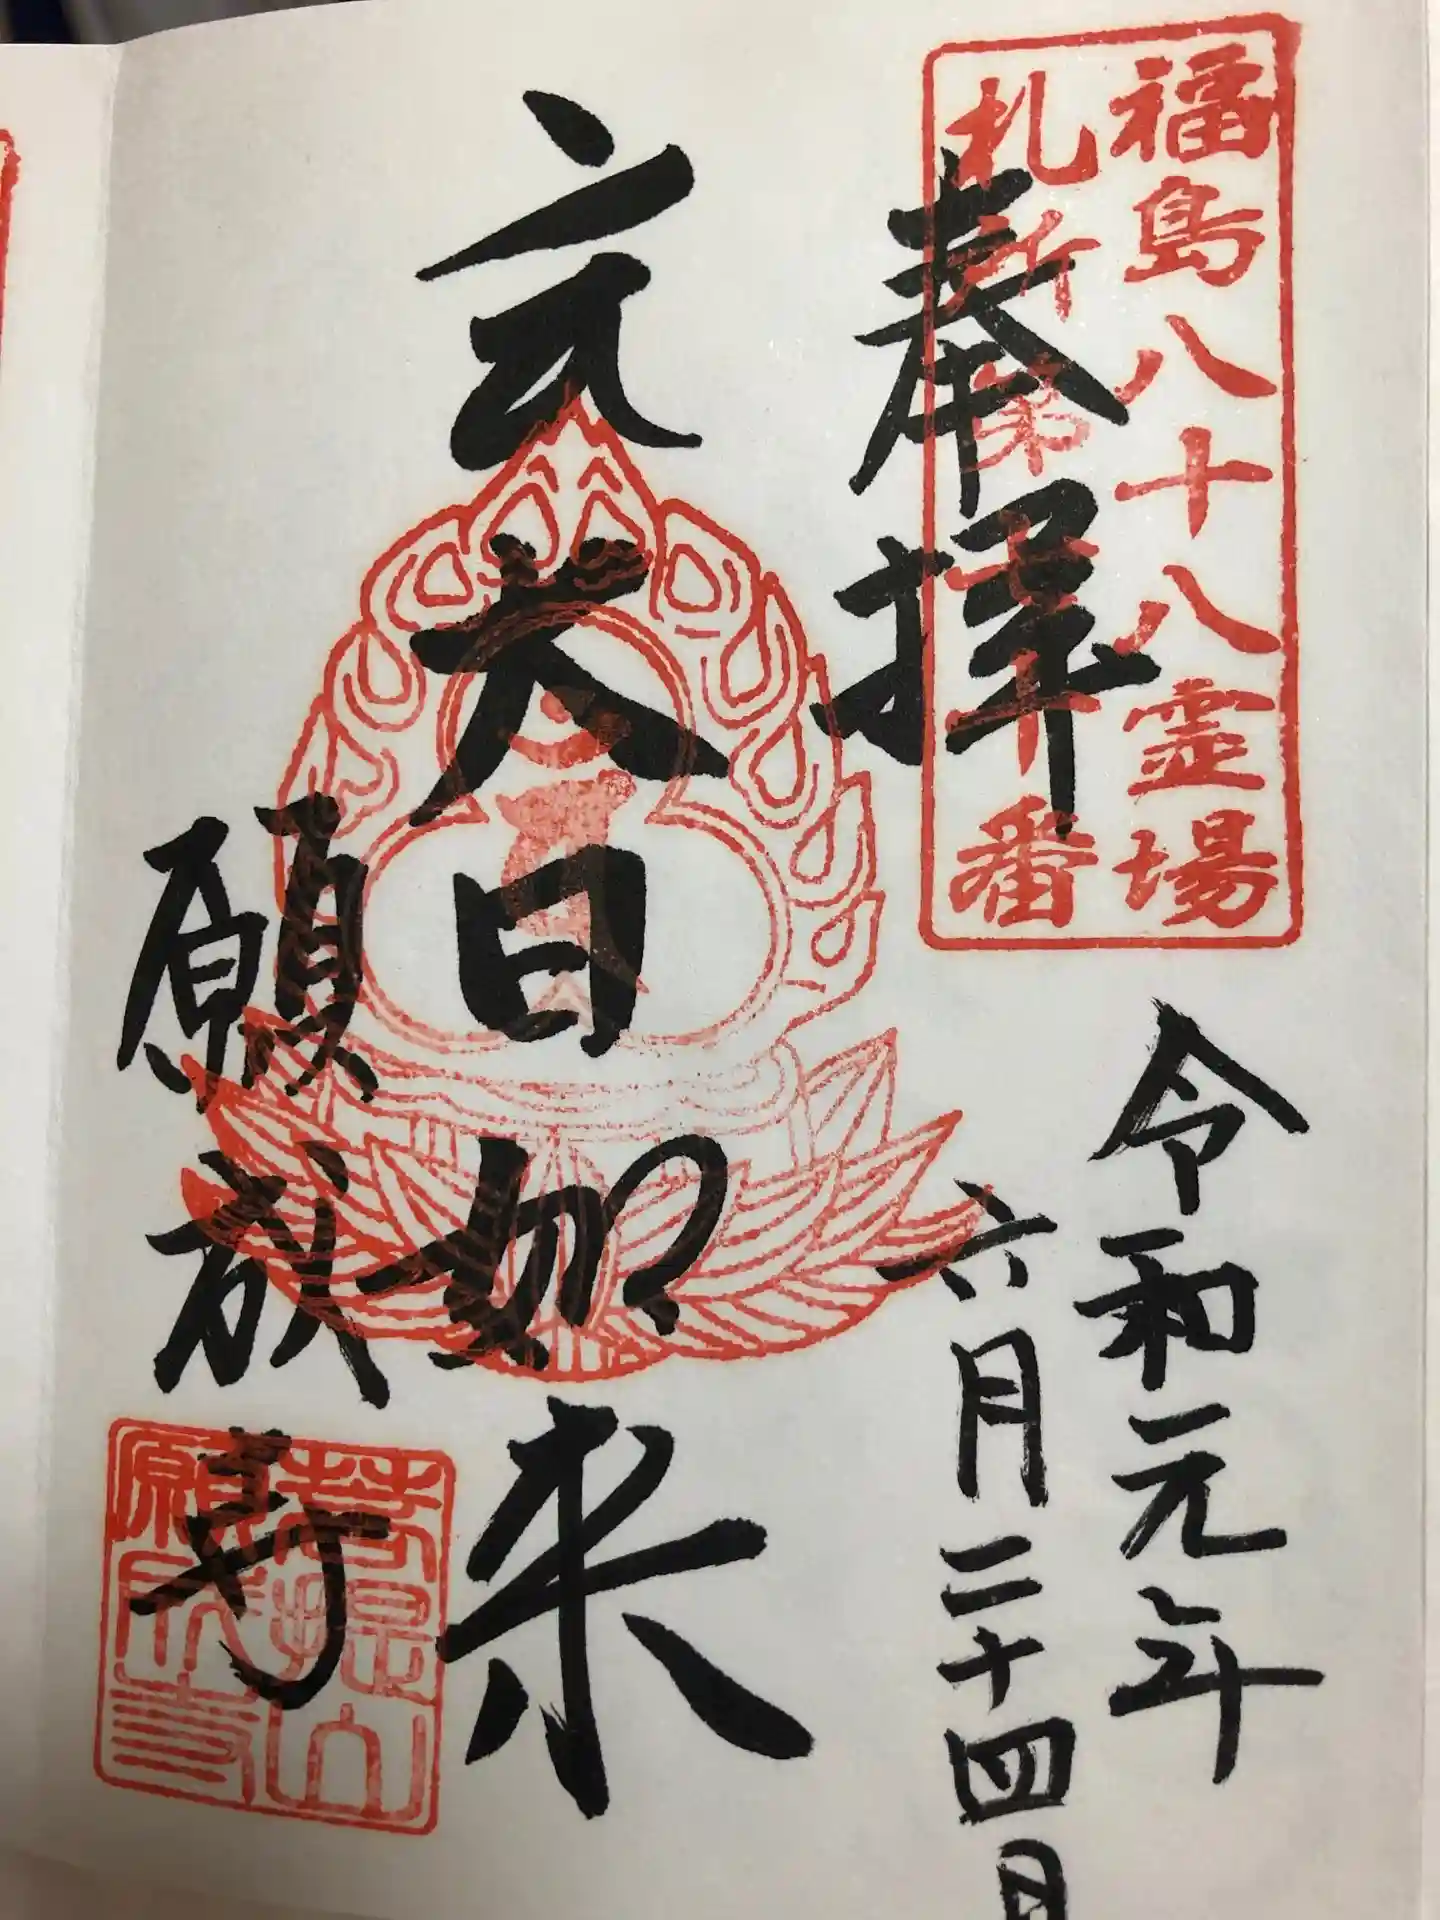 福島八十八霊場
札所第十番
奉拝
令和元年
六月二十四日
大日如来
願成寺
菩提山
願成寺